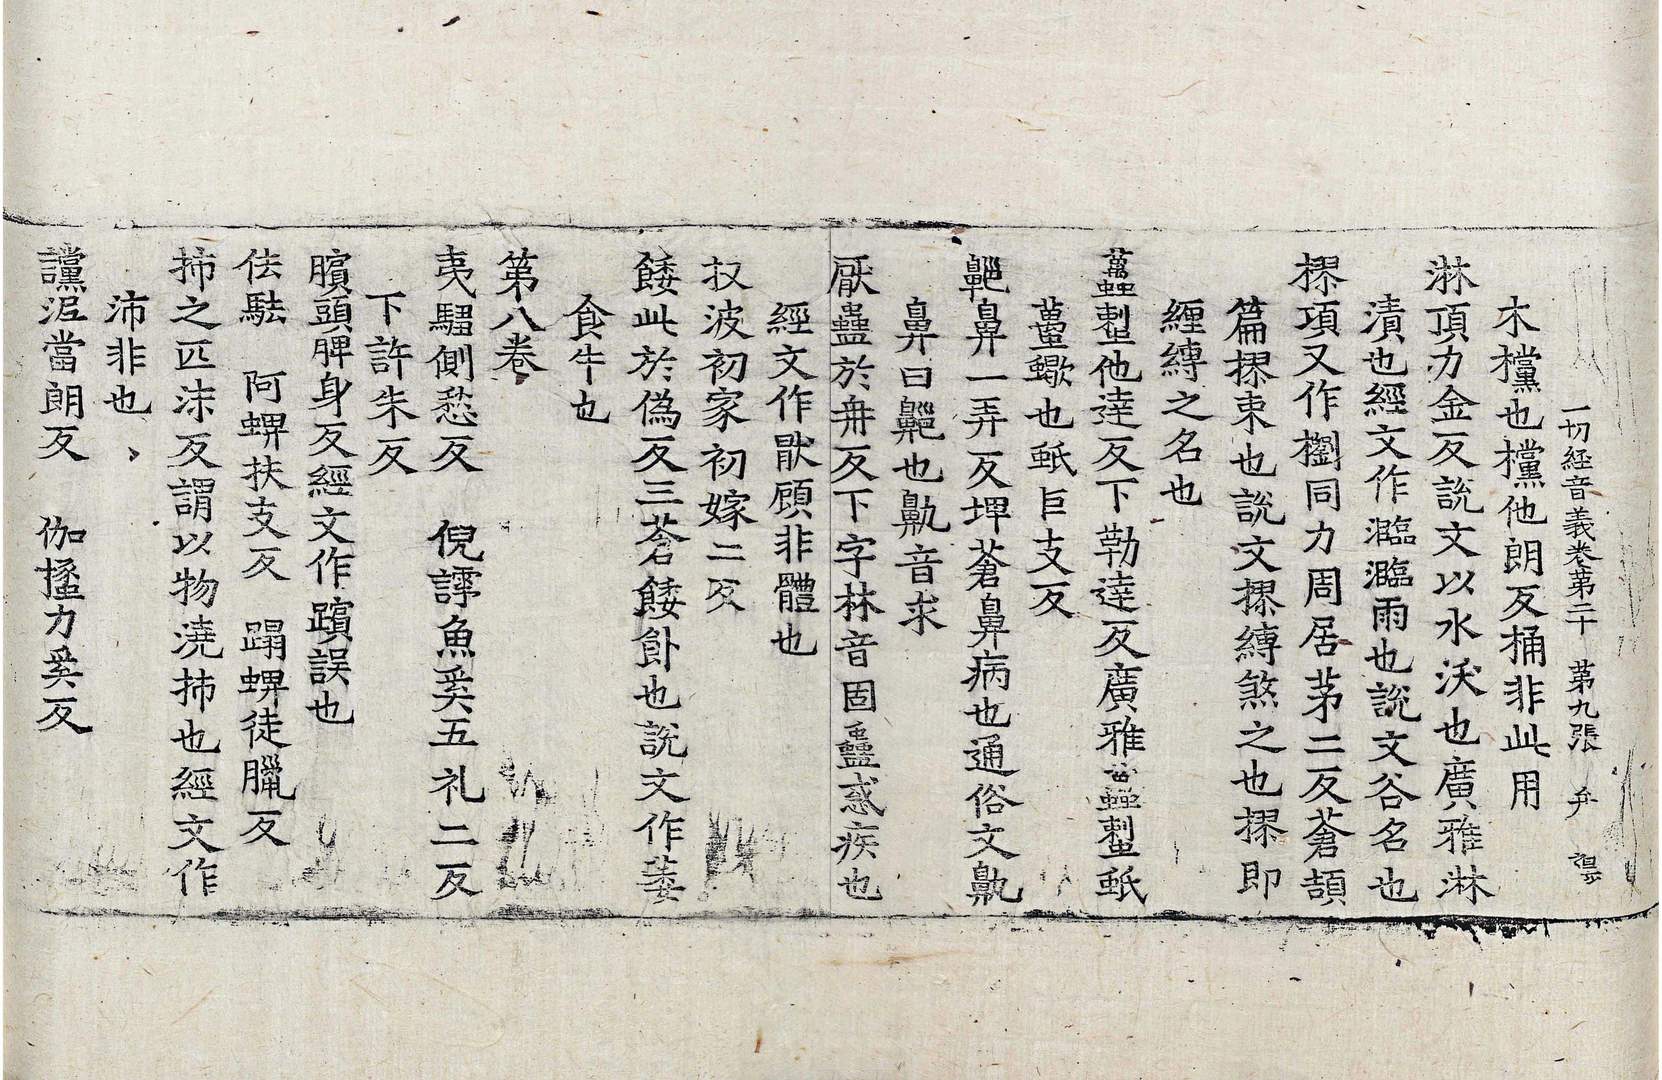 一切経音義卷第二十　第九張　弁
木欓也欓他朗反桶非此用
淋頂力金反說文以水沃也廣雅淋
漬也經文作㴰㴰雨也說文谷名也
摎項又作㩅同力周居茅二反蒼頡
篇摎束也說文摎縛煞之也摎即
纒縛之名也
䘍䗶他達反下勒達反廣雅䗶蚳
蠆蠍也蚳巨支反
齆鼻一弄反埤蒼鼻病也通俗文鼽
鼻曰齆也鼽音求
厭蠱於冊反下字林音固蠱惑疾也
經文作猒顧非體也
扠波初家初嫁二反
餧此於偽反三蒼餧飤也說文作萎
食牛也
第八卷
夷騶側愁反　倪謣魚奚五礼二反
下許朱反
臏頭脾身反經文作蹟誤也
佉駄　阿蜱扶支反　蹋蜱徒臘反
㧊之匹沬反謂以物澆㧊也經文作
沛非也
讜泥當朗反　伽㨫力奚反